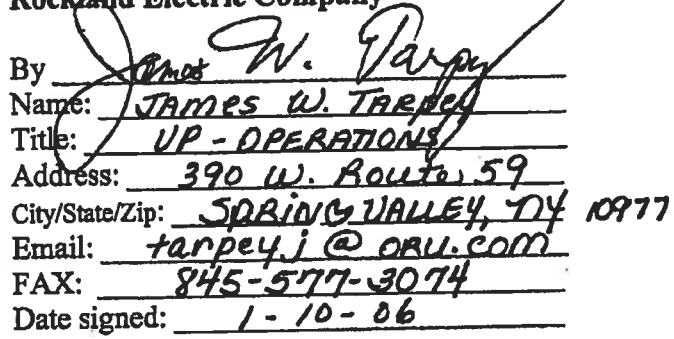 Rockland Electric Company
By James W. Tarpey
Name: JAMES W. TARPEY
Title: VP - OPERATIONS
Address: 390 W. Route 59
City/State/Zip: SPRING VALLEY, NY 10977
Email: tarpeyj @ ORU.COM
FAX: 845-577-3074
Date signed: 1-10-06